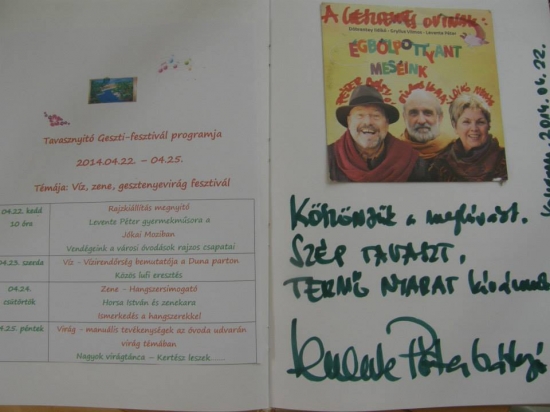 Tavasznyitó Geszti-fesztivál programja
2014.04.22. – 04.25.
Témája: Víz, zene, gesztenyevirág fesztivál
04.22. kedd
10 óra
Rajzkiállítás megnyitó
Levente Péter gyermekműsora a
Jókai Moziban
Vendégeink a városi óvodások rajzos csapatai
04.23. szerda
Víz - Vízirendőrség bemutatója a Duna parton
Közös lufi eresztés
04.24.
csütörtök
Zene - Hangszersimogató
Horsa István és zenekara
Ismerkedés a hangszerekkel
4.25. péntek
Virág – manuális tevékenységek az óvoda udvarán
virág témában
Nagyok virágtánca – Kertész leszek……
A GESZTENYÉS OVINAK:
Döbrentey Ildikó - Gryllus Vilmos - Levente Péter
ÉGBŐLPOTTYANT
MESÉINK
2014. 04. 22.
Köszönjük a meghívást.
SZÉP TAVASZT,
TERMŐ NYARAT
Levente Péter